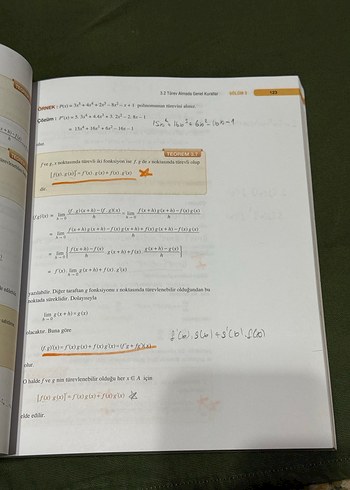 3.2 Türev Almada Genel Kurallar BÖLÜM 3 123
ÖRNEK : P(x) = 3x⁵ + 4x⁴ + 2x³ − 8x² − x + 1 polinomunun türevini alınız.
Çözüm : P'(x) = 5. 3x⁴ + 4.4x³ + 3. 2x² − 2. 8x − 1
= 15x⁴ + 16x³ + 6x² − 16x − 1
olur.
TEOREM 3.7
f ve g, x noktasında türevli iki fonksiyon ise f. g de x noktasında türevli olup
[f(x) g(x)]' = f'(x) g(x) + f(x) g'(x)
dir.
(fg)'(x) = lim h→0 (f. g)(x + h) − (f. g)(x) / h = lim h→0 f(x + h) g(x + h) − f(x) g(x) / h
= lim h→0 f(x + h) g(x + h) − f(x) g(x + h) + f(x) g(x + h) − f(x) g(x) / h
= lim h→0 [ f(x + h) − f(x) / h g(x + h) + f(x) g(x + h) − g(x) / h ]
= f'(x) lim h→0 g(x + h) + f(x) g'(x)
yazılabilir. Diğer taraftan g fonksiyonu x noktasında türevlenebilir olduğundan bu
noktada süreklidir. Dolayısıyla,
lim h→0 g(x + h) = g(x)
olacaktır. Buna göre
(f. g)'(x) = f'(x) g(x) + f(x) g'(x) = (f'g + fg')(x)
olur.
O halde f ve g nin türevlenebilir olduğu her x ∈ A için
[f(x) g(x)]' = f'(x) g(x) + f(x) g'(x)
elde edilir.